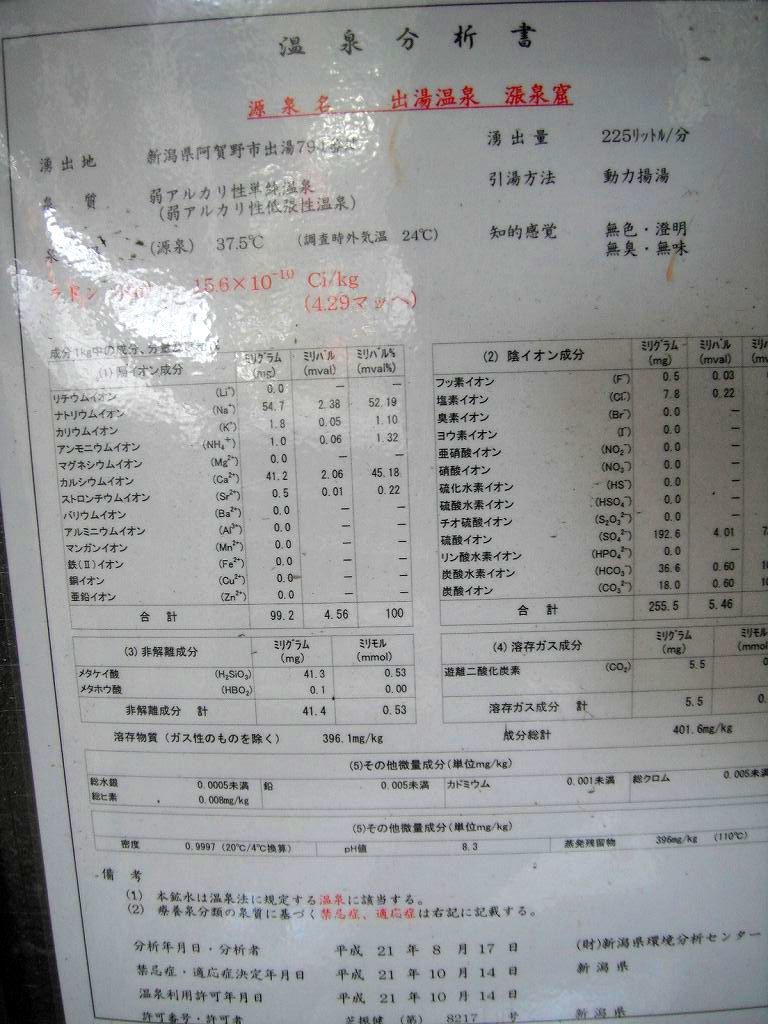 温泉分析書
源泉名 出湯温泉 漲泉窟
湧出地 新潟県阿賀野市出湯794番
泉質 弱アルカリ性単純温泉
(弱アルカリ性低張性温泉)
泉 (源泉) 37.5℃ (調査時外気温 24℃)
ラドン 15.6×10⁻¹⁰ Ci/kg
(4.29マッヘ)
湧出量 225リットル/分
引湯方法 動力揚湯
知的感覚 無色・澄明
無臭・無味
成分1kg中の成分、分量
(1) 陽イオン成分 ミリグラム(mg) ミリバル(mval) ミリバル%(mval%)
リチウムイオン (Li⁺) 0.0 — —
ナトリウムイオン (Na⁺) 54.7 2.38 52.19
カリウムイオン (K⁺) 1.8 0.05 1.10
アンモニウムイオン (NH₄⁺) 1.0 0.06 1.32
マグネシウムイオン (Mg²⁺) 0.0 — —
カルシウムイオン (Ca²⁺) 41.2 2.06 45.18
ストロンチウムイオン (Sr²⁺) 0.5 0.01 0.22
バリウムイオン (Ba²⁺) 0.0 — —
アルミニウムイオン (Al³⁺) 0.0 — —
マンガンイオン (Mn²⁺) 0.0 — —
鉄(Ⅱ)イオン (Fe²⁺) 0.0 — —
銅イオン (Cu²⁺) 0.0 — —
亜鉛イオン (Zn²⁺) 0.0 — —
合計 99.2 4.56 100
(2) 陰イオン成分 ミリグラム(mg) ミリバル(mval)
フッ素イオン (F⁻) 0.5 0.03
塩素イオン (Cl⁻) 7.8 0.22
臭素イオン (Br⁻) 0.0 —
ヨウ素イオン (I⁻) 0.0 —
亜硝酸イオン (NO₂⁻) 0.0 —
硝酸イオン (NO₃⁻) 0.0 —
硫化水素イオン (HS⁻) 0.0 —
硫酸水素イオン (HSO₄⁻) 0.0 —
チオ硫酸イオン (S₂O₃²⁻) 0.0 —
硫酸イオン (SO₄²⁻) 192.6 4.01
リン酸水素イオン (HPO₄²⁻) 0.0 —
炭酸水素イオン (HCO₃⁻) 36.6 0.60
炭酸イオン (CO₃²⁻) 18.0 0.60
合計 255.5 5.46
(3) 非解離成分 ミリグラム(mg) ミリモル(mmol)
メタケイ酸 (H₂SiO₃) 41.3 0.53
メタホウ酸 (HBO₂) 0.1 0.00
非解離成分 計 41.4 0.53
(4) 溶存ガス成分 ミリグラム(mg) ミリモル(mmol)
遊離二酸化炭素 (CO₂) 5.5
溶存ガス成分 計 5.5
溶存物質(ガス性のものを除く) 396.1mg/kg 成分総計 401.6mg/kg
(5)その他微量成分(単位mg/kg)
総水銀 0.0005未満 鉛 0.005未満 カドミウム 0.001未満 総クロム 0.005未満
総ヒ素 0.008mg/kg
(5)その他微量成分(単位mg/kg)
密度 0.9997 (20℃/4℃換算) pH値 8.3 蒸発残留物 396mg/kg (110℃)
備考
(1) 本鉱水は温泉法に規定する温泉に該当する。
(2) 療養泉分類の泉質に基づく禁忌症、適応症は右記に記載する。
分析年月日・分析者 平成 21 年 8 月 17 日 (財)新潟県環境分析センター
禁忌症・適応症決定年月日 平成 21 年 10 月 14 日 新潟県
温泉利用許可年月日 平成 21 年 10 月 14 日
許可番号・許可者 芝振健 (第) 8217 号 新潟県